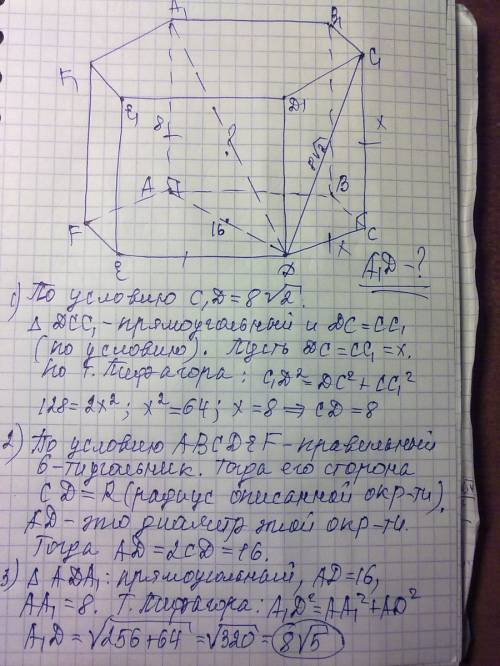 A₁
B₁
F₁
C₁
E₁
D₁
8
?
8√2
x
A
B
F
16
C
E
D
x
A₁D - ?
1) По условию C₁D = 8√2.
Δ DCC₁ - прямоугольный и DC = CC₁
(по условию). Пусть DC = CC₁ = x.
По т. Пифагора: C₁D² = DC² + CC₁²
128 = 2x²; x² = 64; x = 8 ⇒ CD = 8
2) По условию ABCDEF - правильный
6-тиугольник. Тогда его сторона
CD = R (радиус описанной окр-ти).
AD - это диаметр этой окр-ти.
Тогда AD = 2CD = 16.
3) Δ ADA₁: прямоугольный, AD = 16,
AA₁ = 8. Т. Пифагора: A₁D² = AA₁² + AD²
A₁D = √256+64 = √320 = 8√5